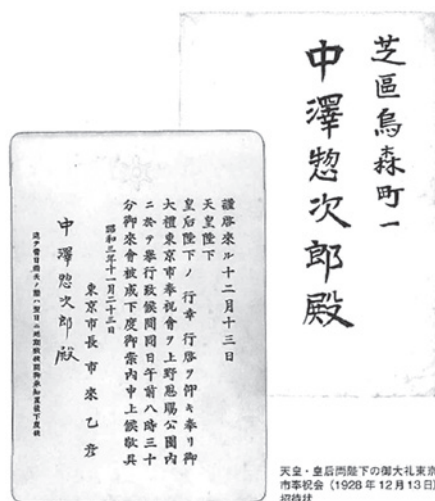 芝區烏森町一
中澤惣次郎殿
謹啓來ル十二月十三日
天皇陛下
皇后陛下ノ行幸行啓ヲ仰キ奉リ御
大禮東京市奉祝會ヲ上野恩賜公園內
ニ於テ擧行致候間同日午前八時三十
分御來會被成下度御案內申上候敬具
昭和三年十一月二十三日
東京市長市來乙彦
中澤惣次郎殿
天皇・皇后両陛下の御大礼東京
市奉祝会（1928年12月13日）
招待状